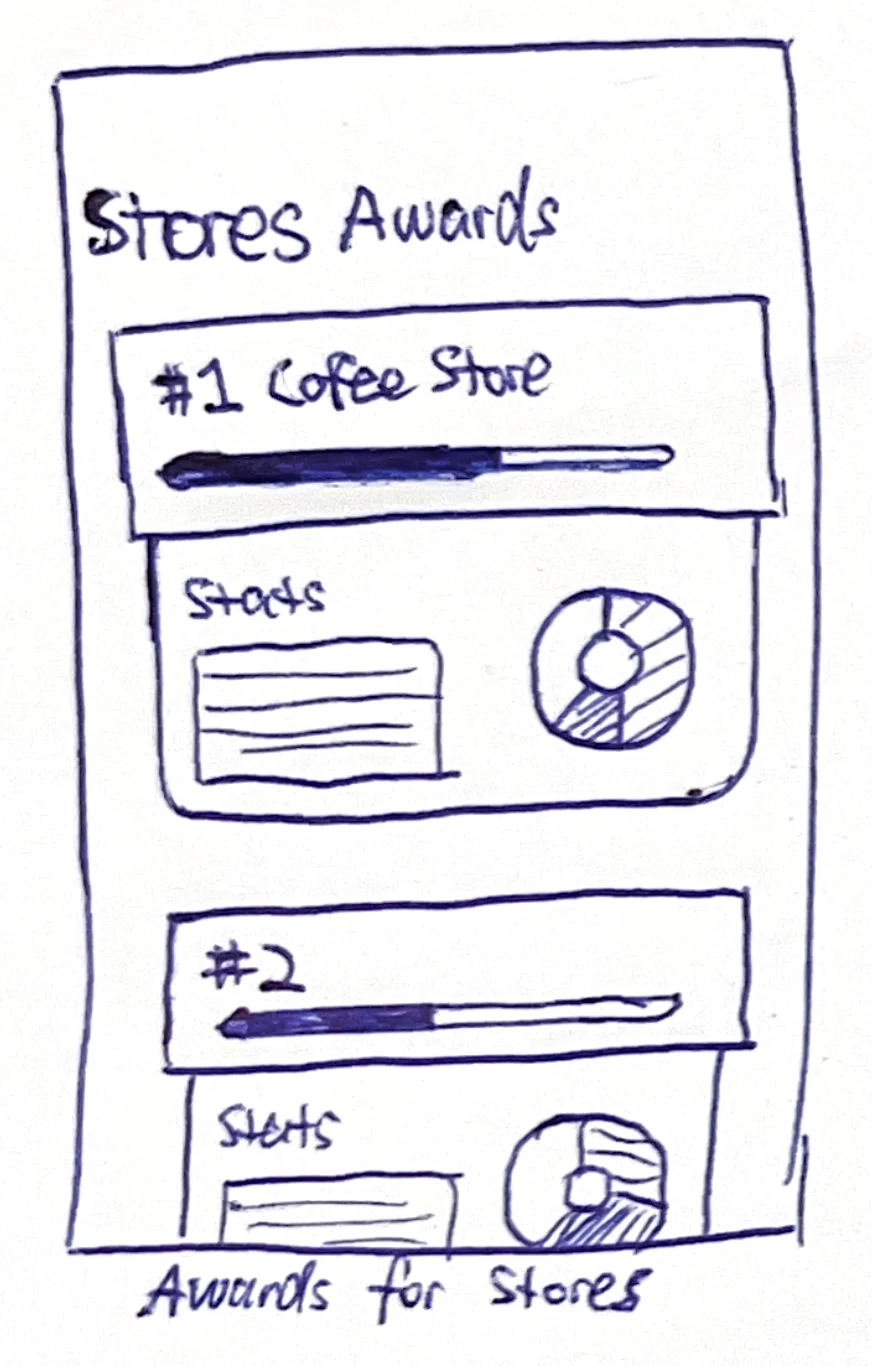 Stores Awards
#1 Cofee Store
Stats
#2
Stats
Awards for Stores